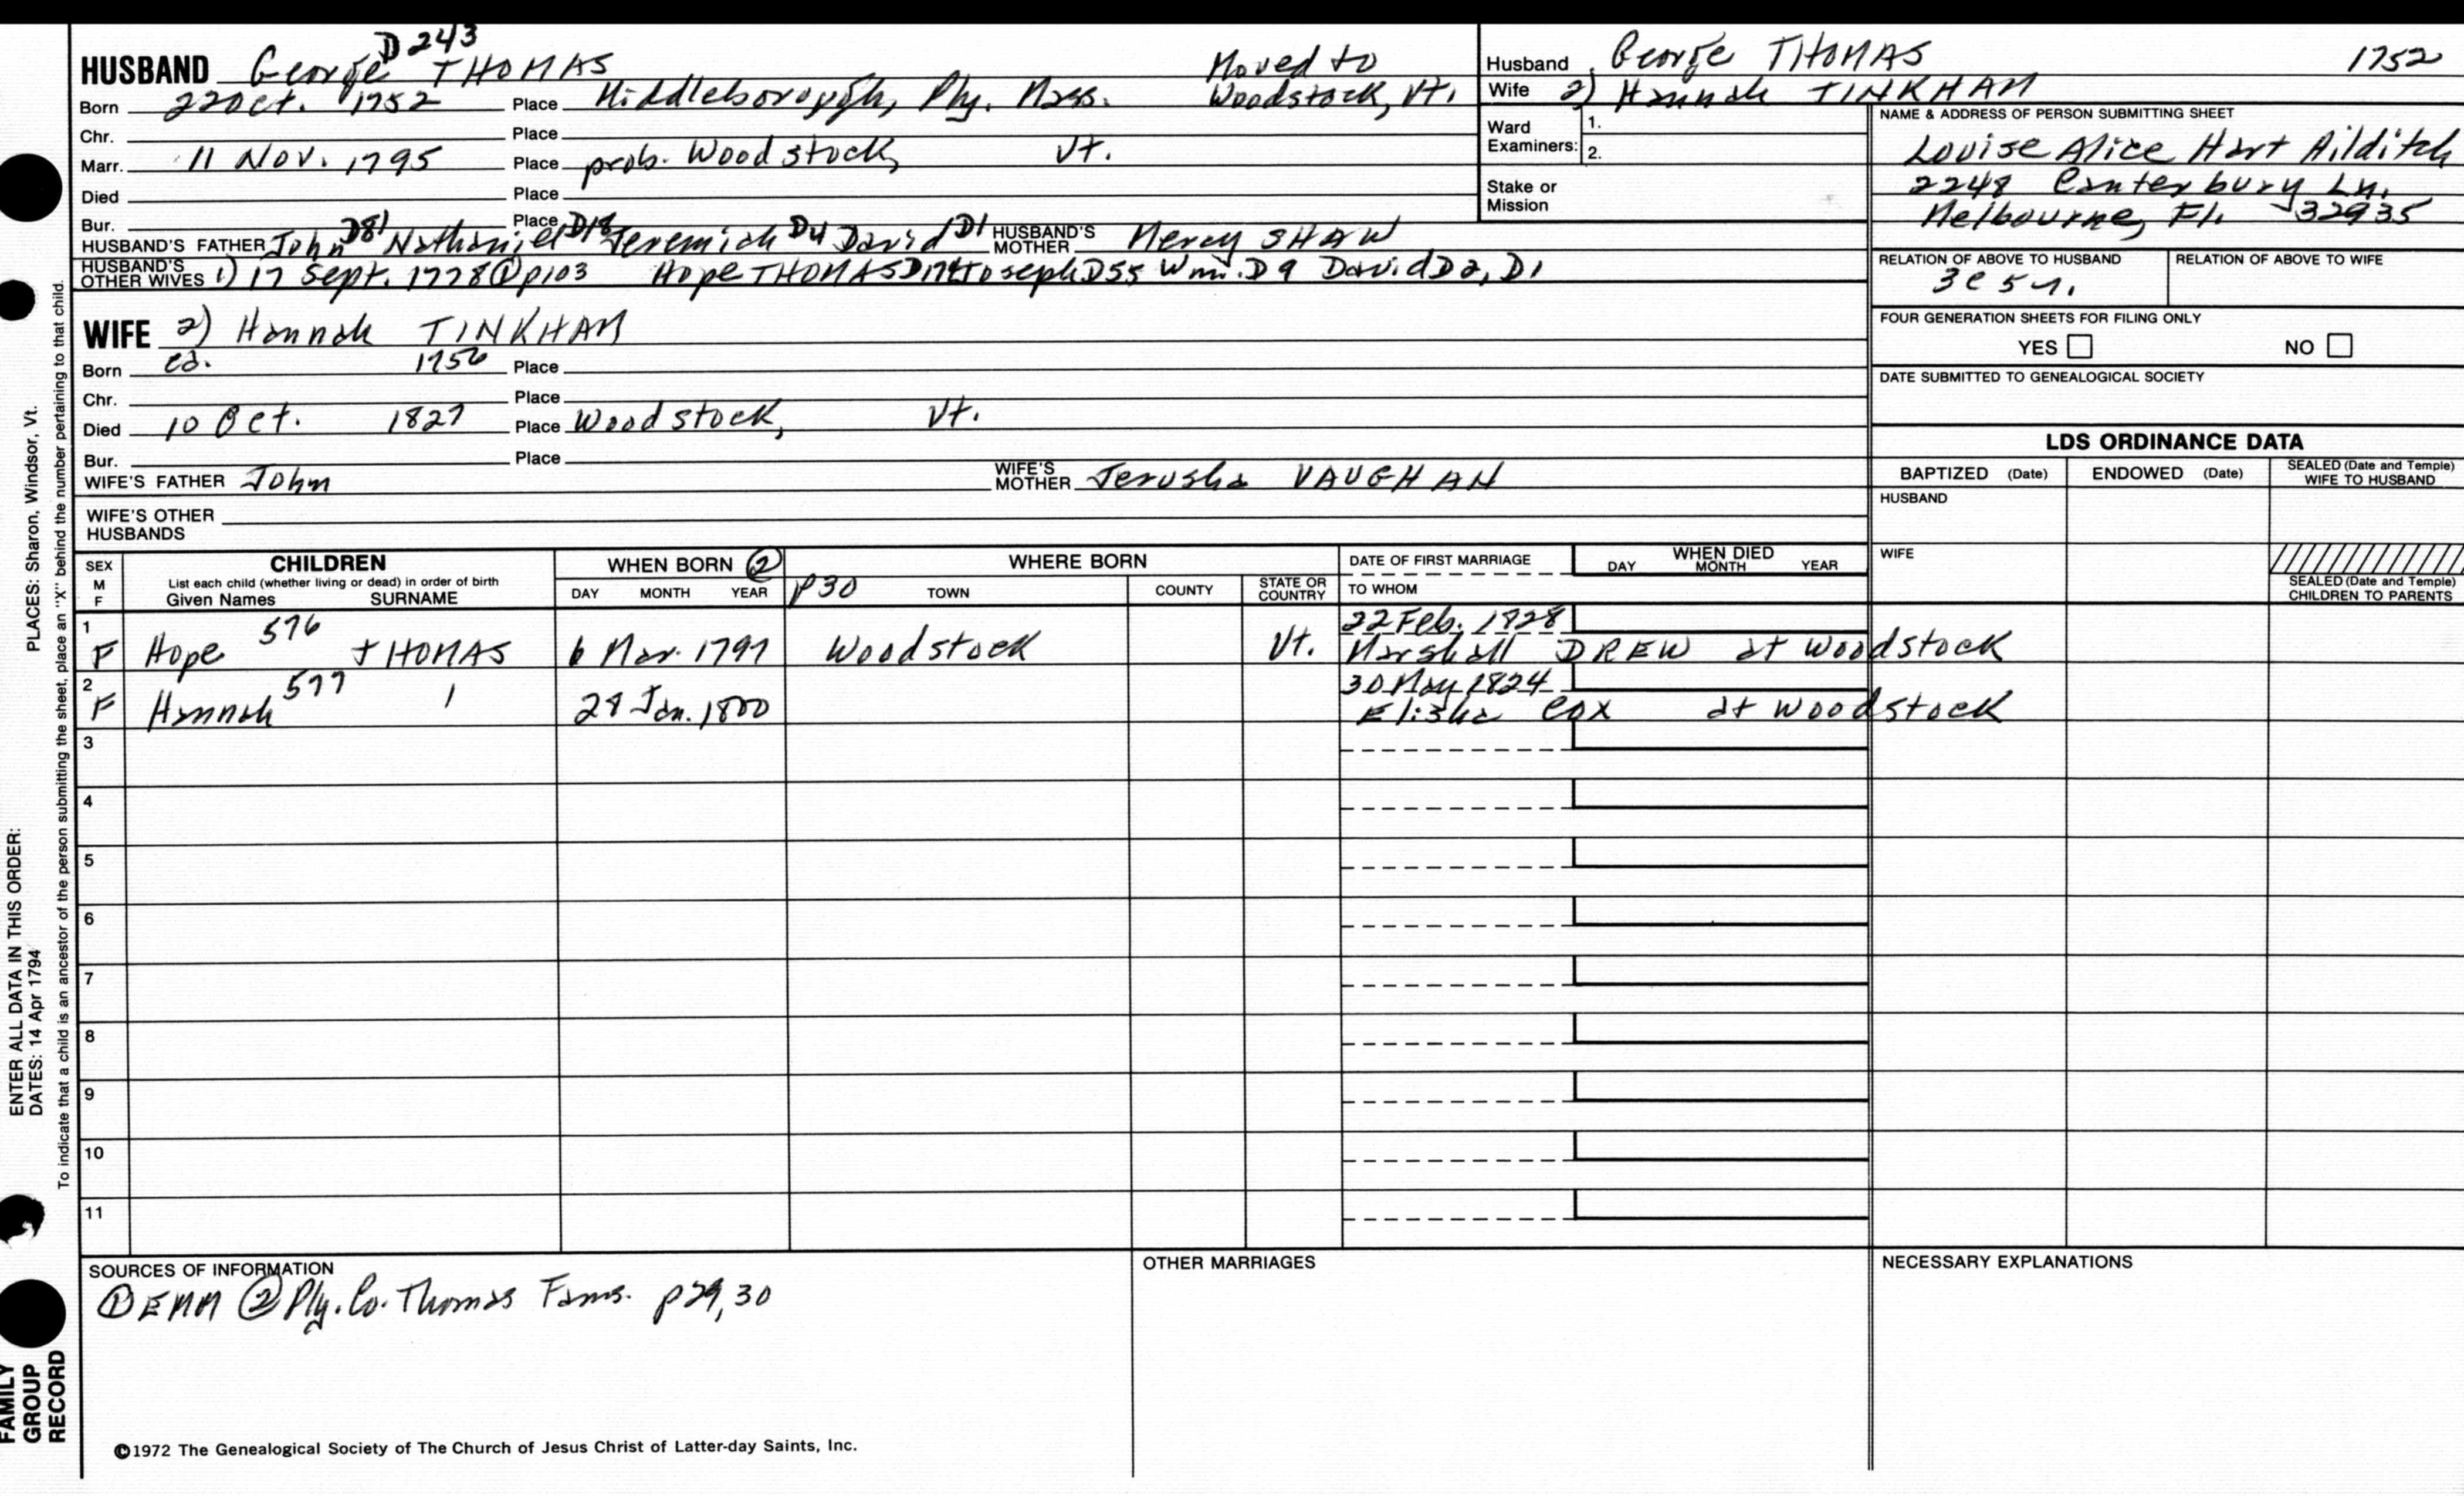 D 243
HUSBAND George THOMAS
Born 22 Oct. 1752 Place Middleborough, Ply. Mass. Moved to Woodstock, Vt.
Chr. Place
Marr. 11 Nov. 1795 Place prob. Woodstock, Vt.
Died Place
Bur. Place
HUSBAND'S FATHER John D81 Nathaniel D18 Jeremiah D4 David D1 HUSBAND'S MOTHER Mercy SHAW
HUSBAND'S OTHER WIVES 1) 17 Sept. 1778 ① p103 Hope THOMAS Joseph D55 Wm. D9 David D2, D1
WIFE 2) Hannah TINKHAM
Born ca. 1756 Place
Chr. Place
Died 10 Oct. 1827 Place Woodstock, Vt.
Bur. Place
WIFE'S FATHER John WIFE'S MOTHER Jerusha VAUGHAN
WIFE'S OTHER HUSBANDS
Husband George THOMAS 1752
Wife 2) Hannah TINKHAM
Ward Examiners: 1.
2.
Stake or Mission
NAME & ADDRESS OF PERSON SUBMITTING SHEET
Louise Alice Hart Ailditch
2248 Canterbury Ln.
Melbourne, Fl. 32935
RELATION OF ABOVE TO HUSBAND RELATION OF ABOVE TO WIFE
3c 5r.
FOUR GENERATION SHEETS FOR FILING ONLY
YES NO
DATE SUBMITTED TO GENEALOGICAL SOCIETY
LDS ORDINANCE DATA
BAPTIZED (Date) ENDOWED (Date) SEALED (Date and Temple) WIFE TO HUSBAND
HUSBAND
WIFE
SEALED (Date and Temple) CHILDREN TO PARENTS
SEX M F CHILDREN WHEN BORN ② WHERE BORN DATE OF FIRST MARRIAGE WHEN DIED
List each child (whether living or dead) in order of birth
Given Names SURNAME DAY MONTH YEAR p30 TOWN COUNTY STATE OR COUNTRY TO WHOM DAY MONTH YEAR
1 22 Feb. 1828
F Hope 576 THOMAS 6 Mar. 1797 Woodstock Vt. Marshall DREW at Woodstock
2 30 May 1824
F Hannah 577 28 Jan. 1800 Elisha COX at Woodstock
3
4
5
6
7
8
9
10
11
SOURCES OF INFORMATION OTHER MARRIAGES NECESSARY EXPLANATIONS
① EMM ② Ply. Co. Thomas Fams. p29,30
©1972 The Genealogical Society of The Church of Jesus Christ of Latter-day Saints, Inc.
FAMILY GROUP RECORD
ENTER ALL DATA IN THIS ORDER:
DATES: 14 Apr 1794 PLACES: Sharon, Windsor, Vt.
To indicate that a child is an ancestor of the person submitting the sheet, place an "X" behind the number pertaining to that child.